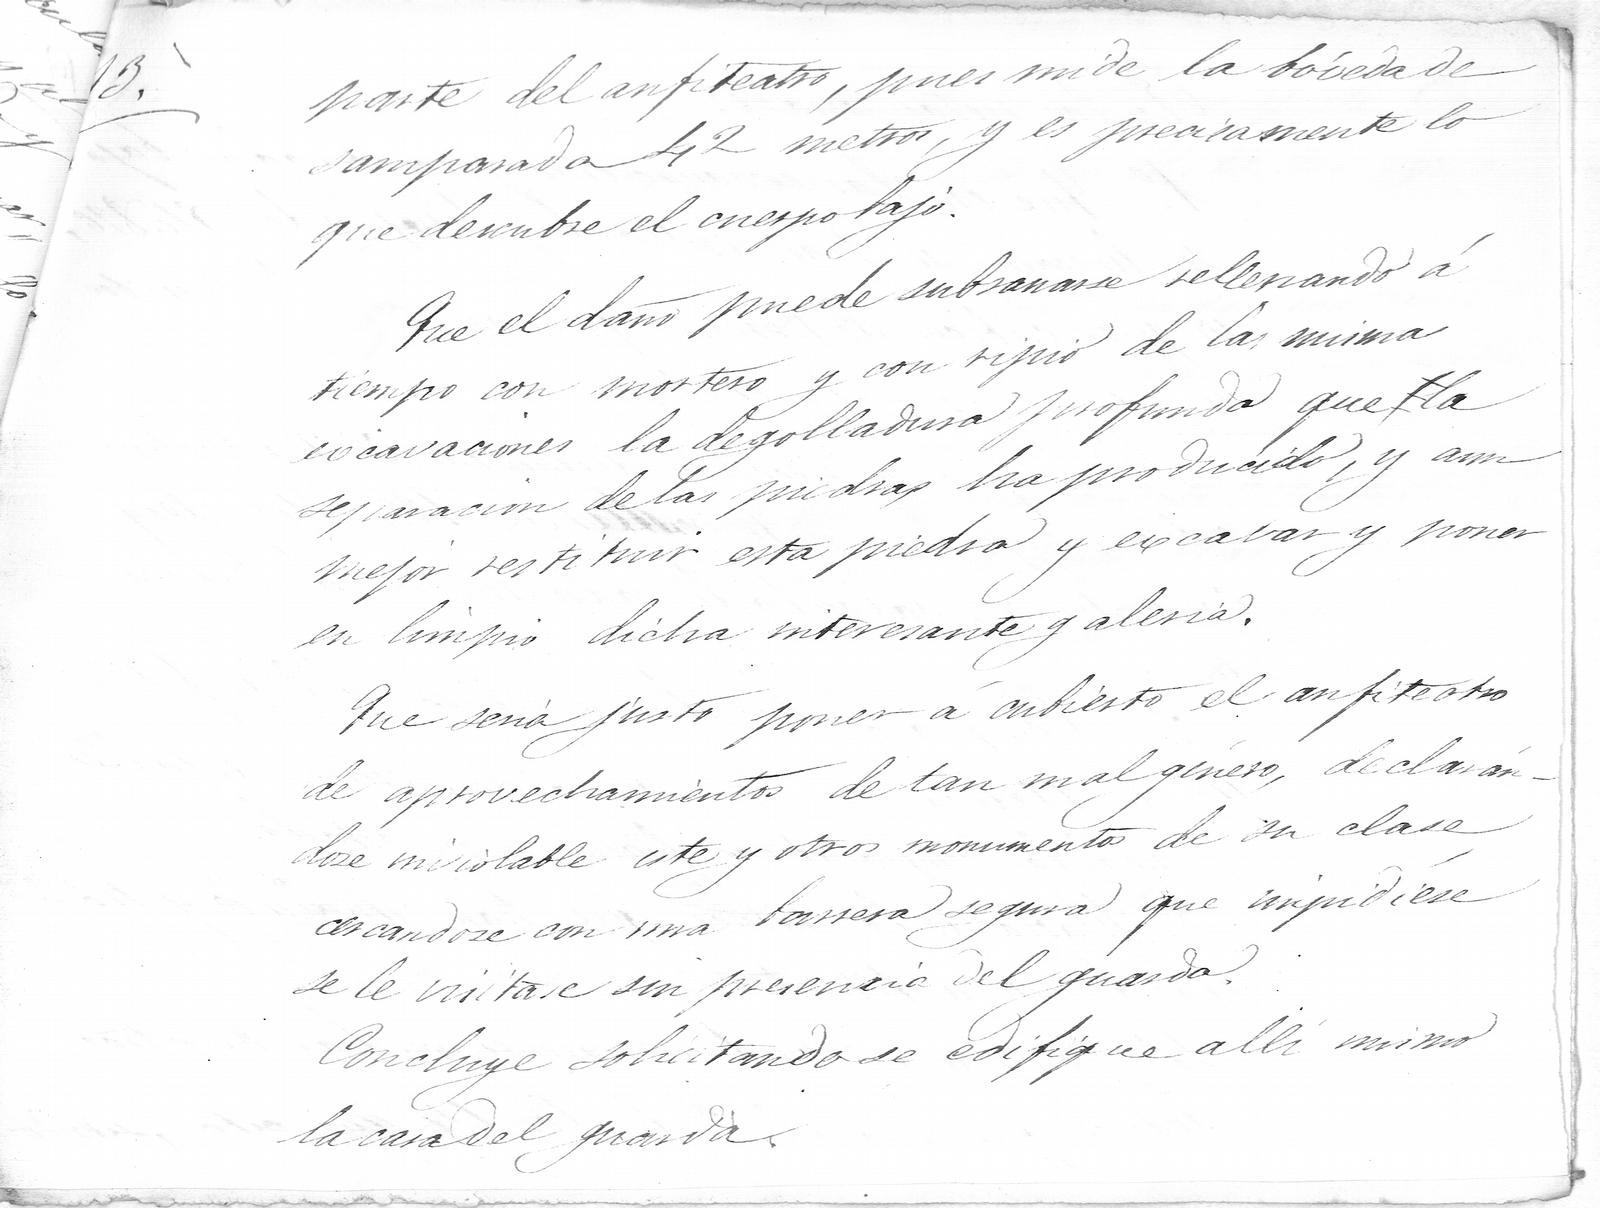 13.
parte del anfiteatro, pues mide la bóveda de
samparada 42 metros, y es precisamente lo
que descubre el cuerpo bajo.
Que el daño puede subsanarse rellenando á
tiempo con mortero y con ripio de las misma
excavaciones la degolladura profunda que la
separacion de las piedras ha producido, y aun
mejor restituir esta piedra y excavar y poner
en limpio dicha interesante galeria.
Que seria justo poner á cubierto el anfiteatro
de aprovechamientos de tan mal género, declarán-
dose inviolable este y otros monumentos de su clase
cercandose con una barrera segura que impidiése
se le visitase sin presencia del guarda.
Concluye solicitando se edifique alli mismo
la casa del guarda.